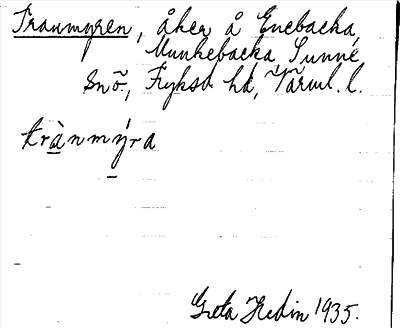 Tranmyren, åker å Enebacka,
Munkebacka, Sunne
sn, Fryksd. hd, Värml. l.
trànmýra
Greta Hedin 1935.